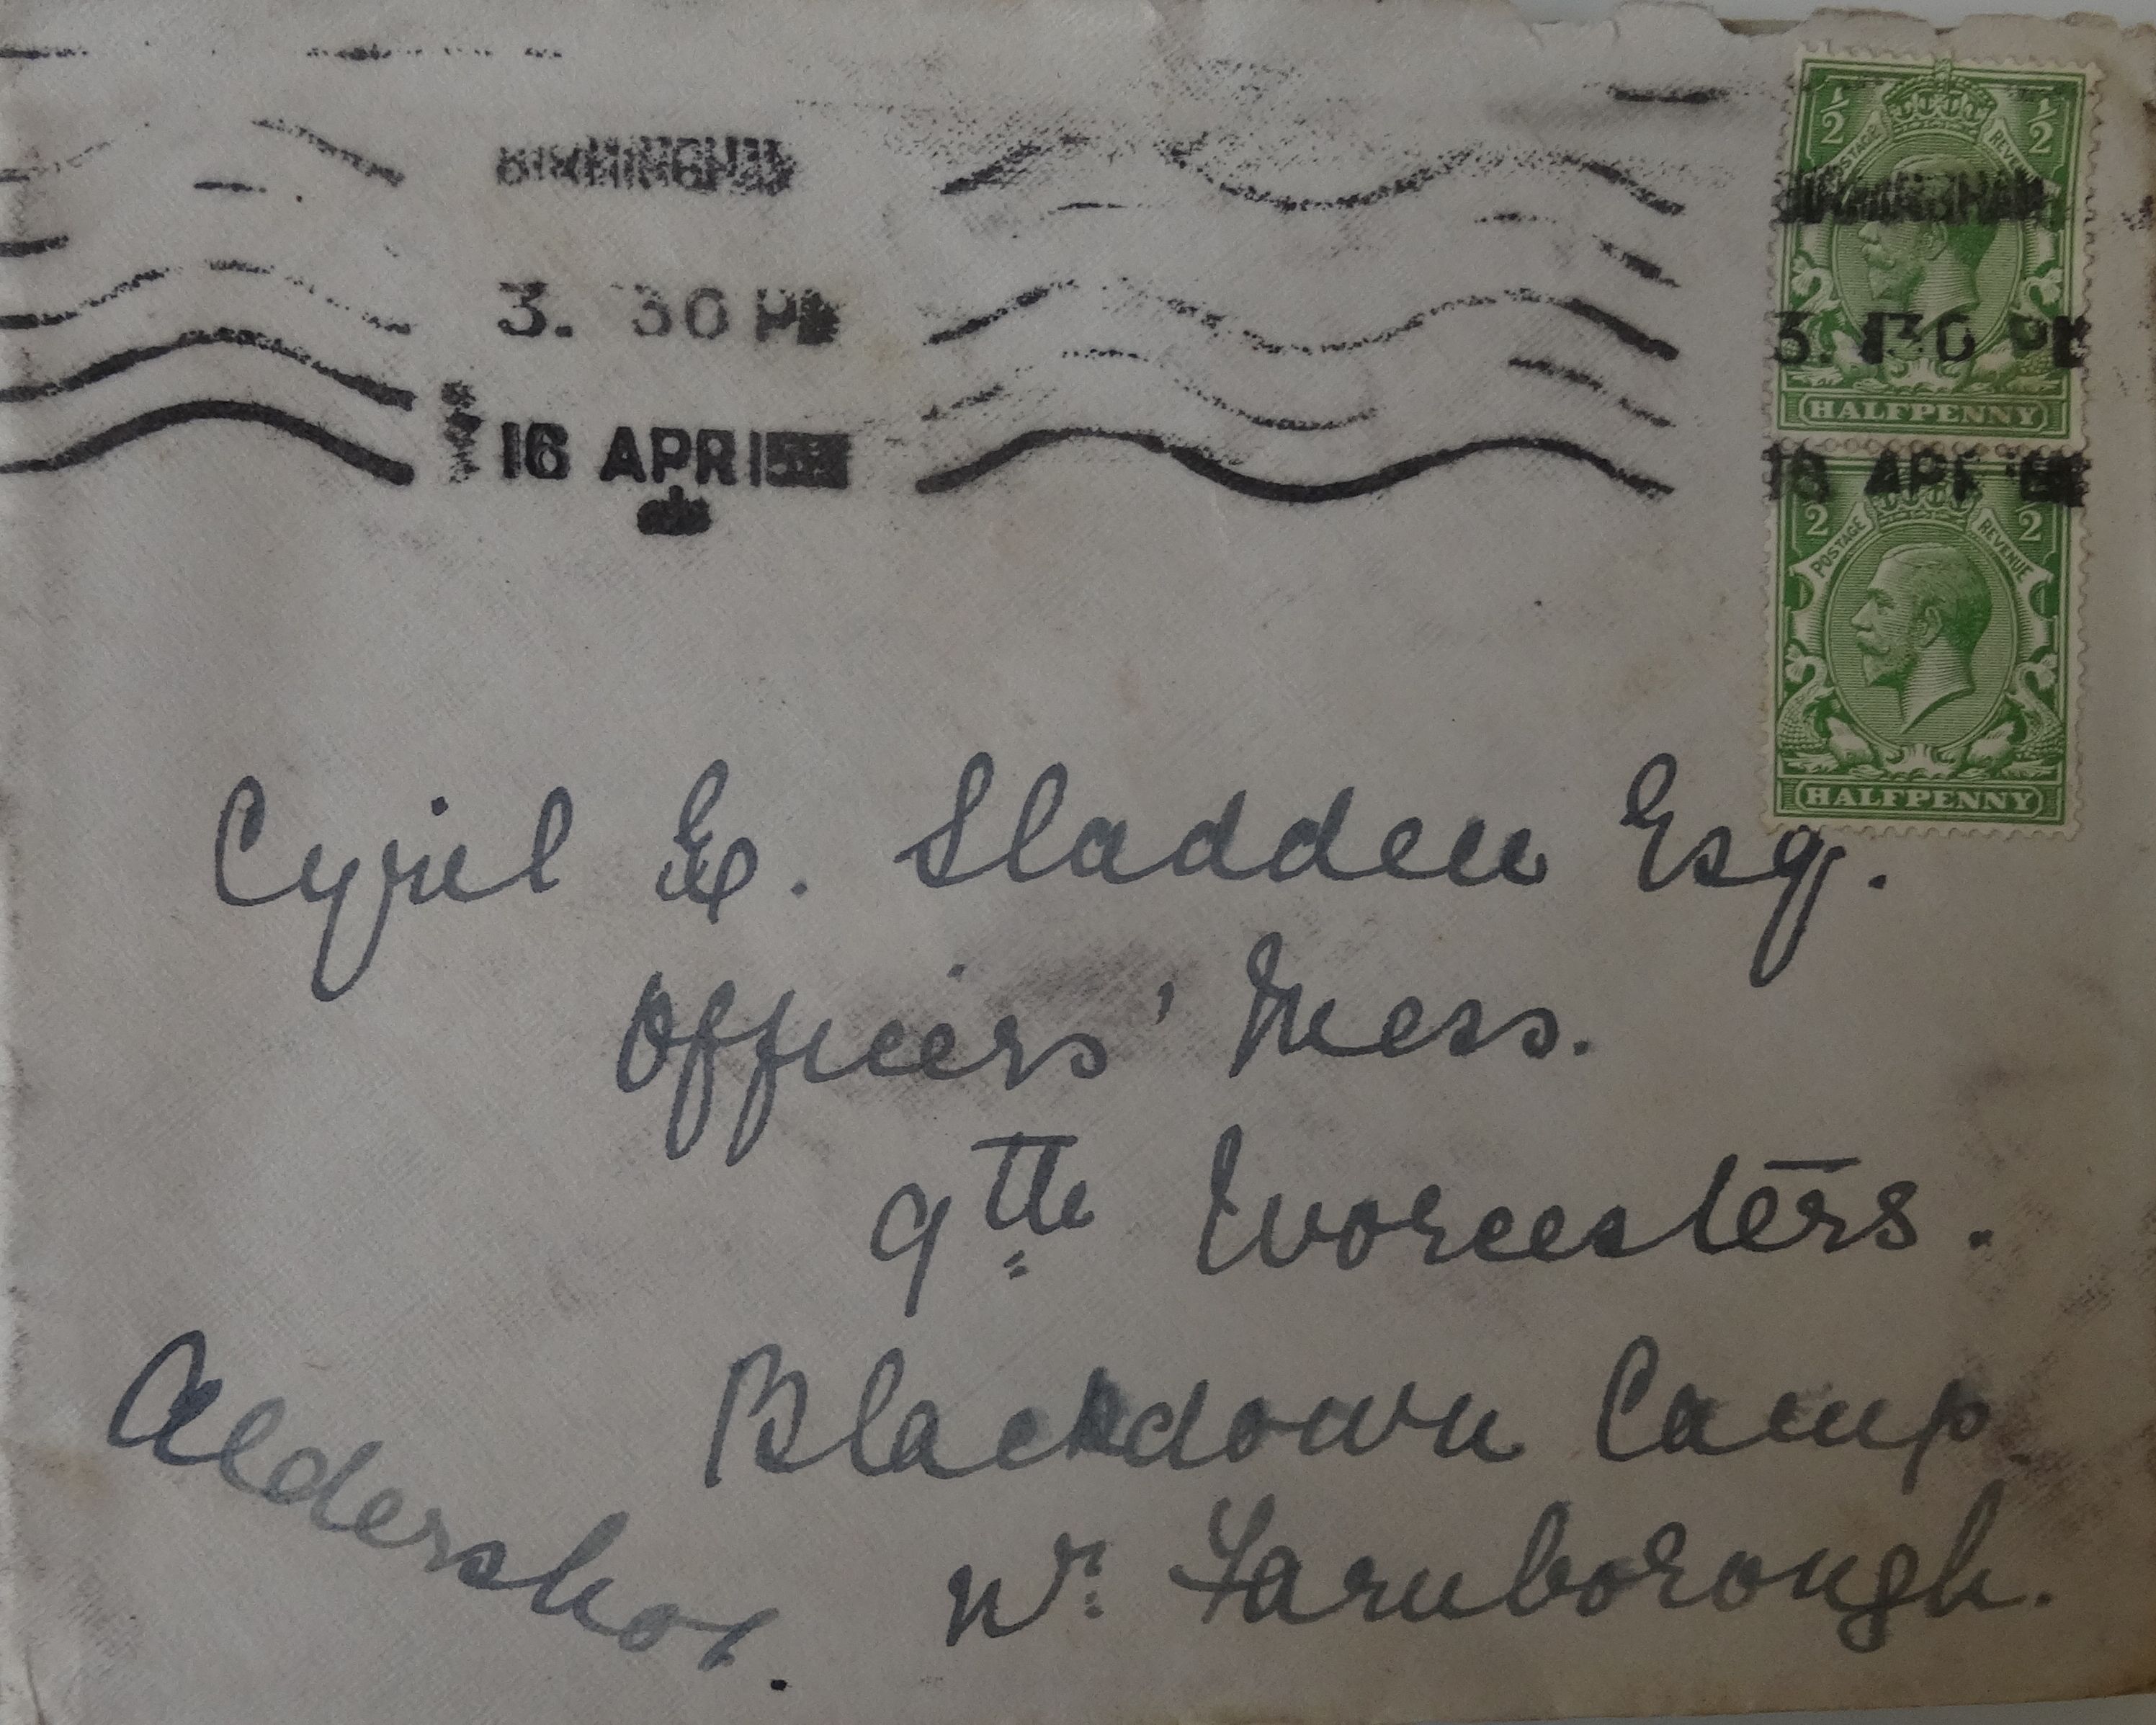 BIRMINGHAM
3. 30 PM
16 APR 15
½ ½
POSTAGE REVENUE
BIRMINGHAM
3. 30 PM
HALFPENNY
16 APR 15
½ ½
POSTAGE REVENUE
HALFPENNY
Cyril E. Sladden Esq.
Officers' Mess.
9th Worcesters.
Blackdown Camp
Nr. Farnborough.
Aldershot.